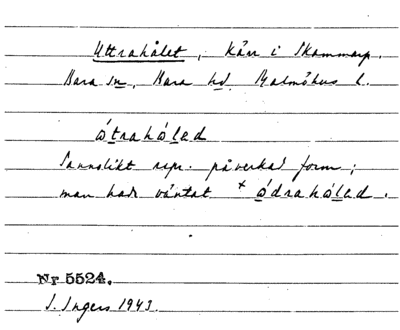 Uttrahålet, Kärr i Skammarp.
Bara sn, Bara hd. Malmöhus l.
ótrahólad
Sannolikt repr. påverkad form;
man hade väntat + ódrahólad.
Nr 5524.
I. Ingers 1943.